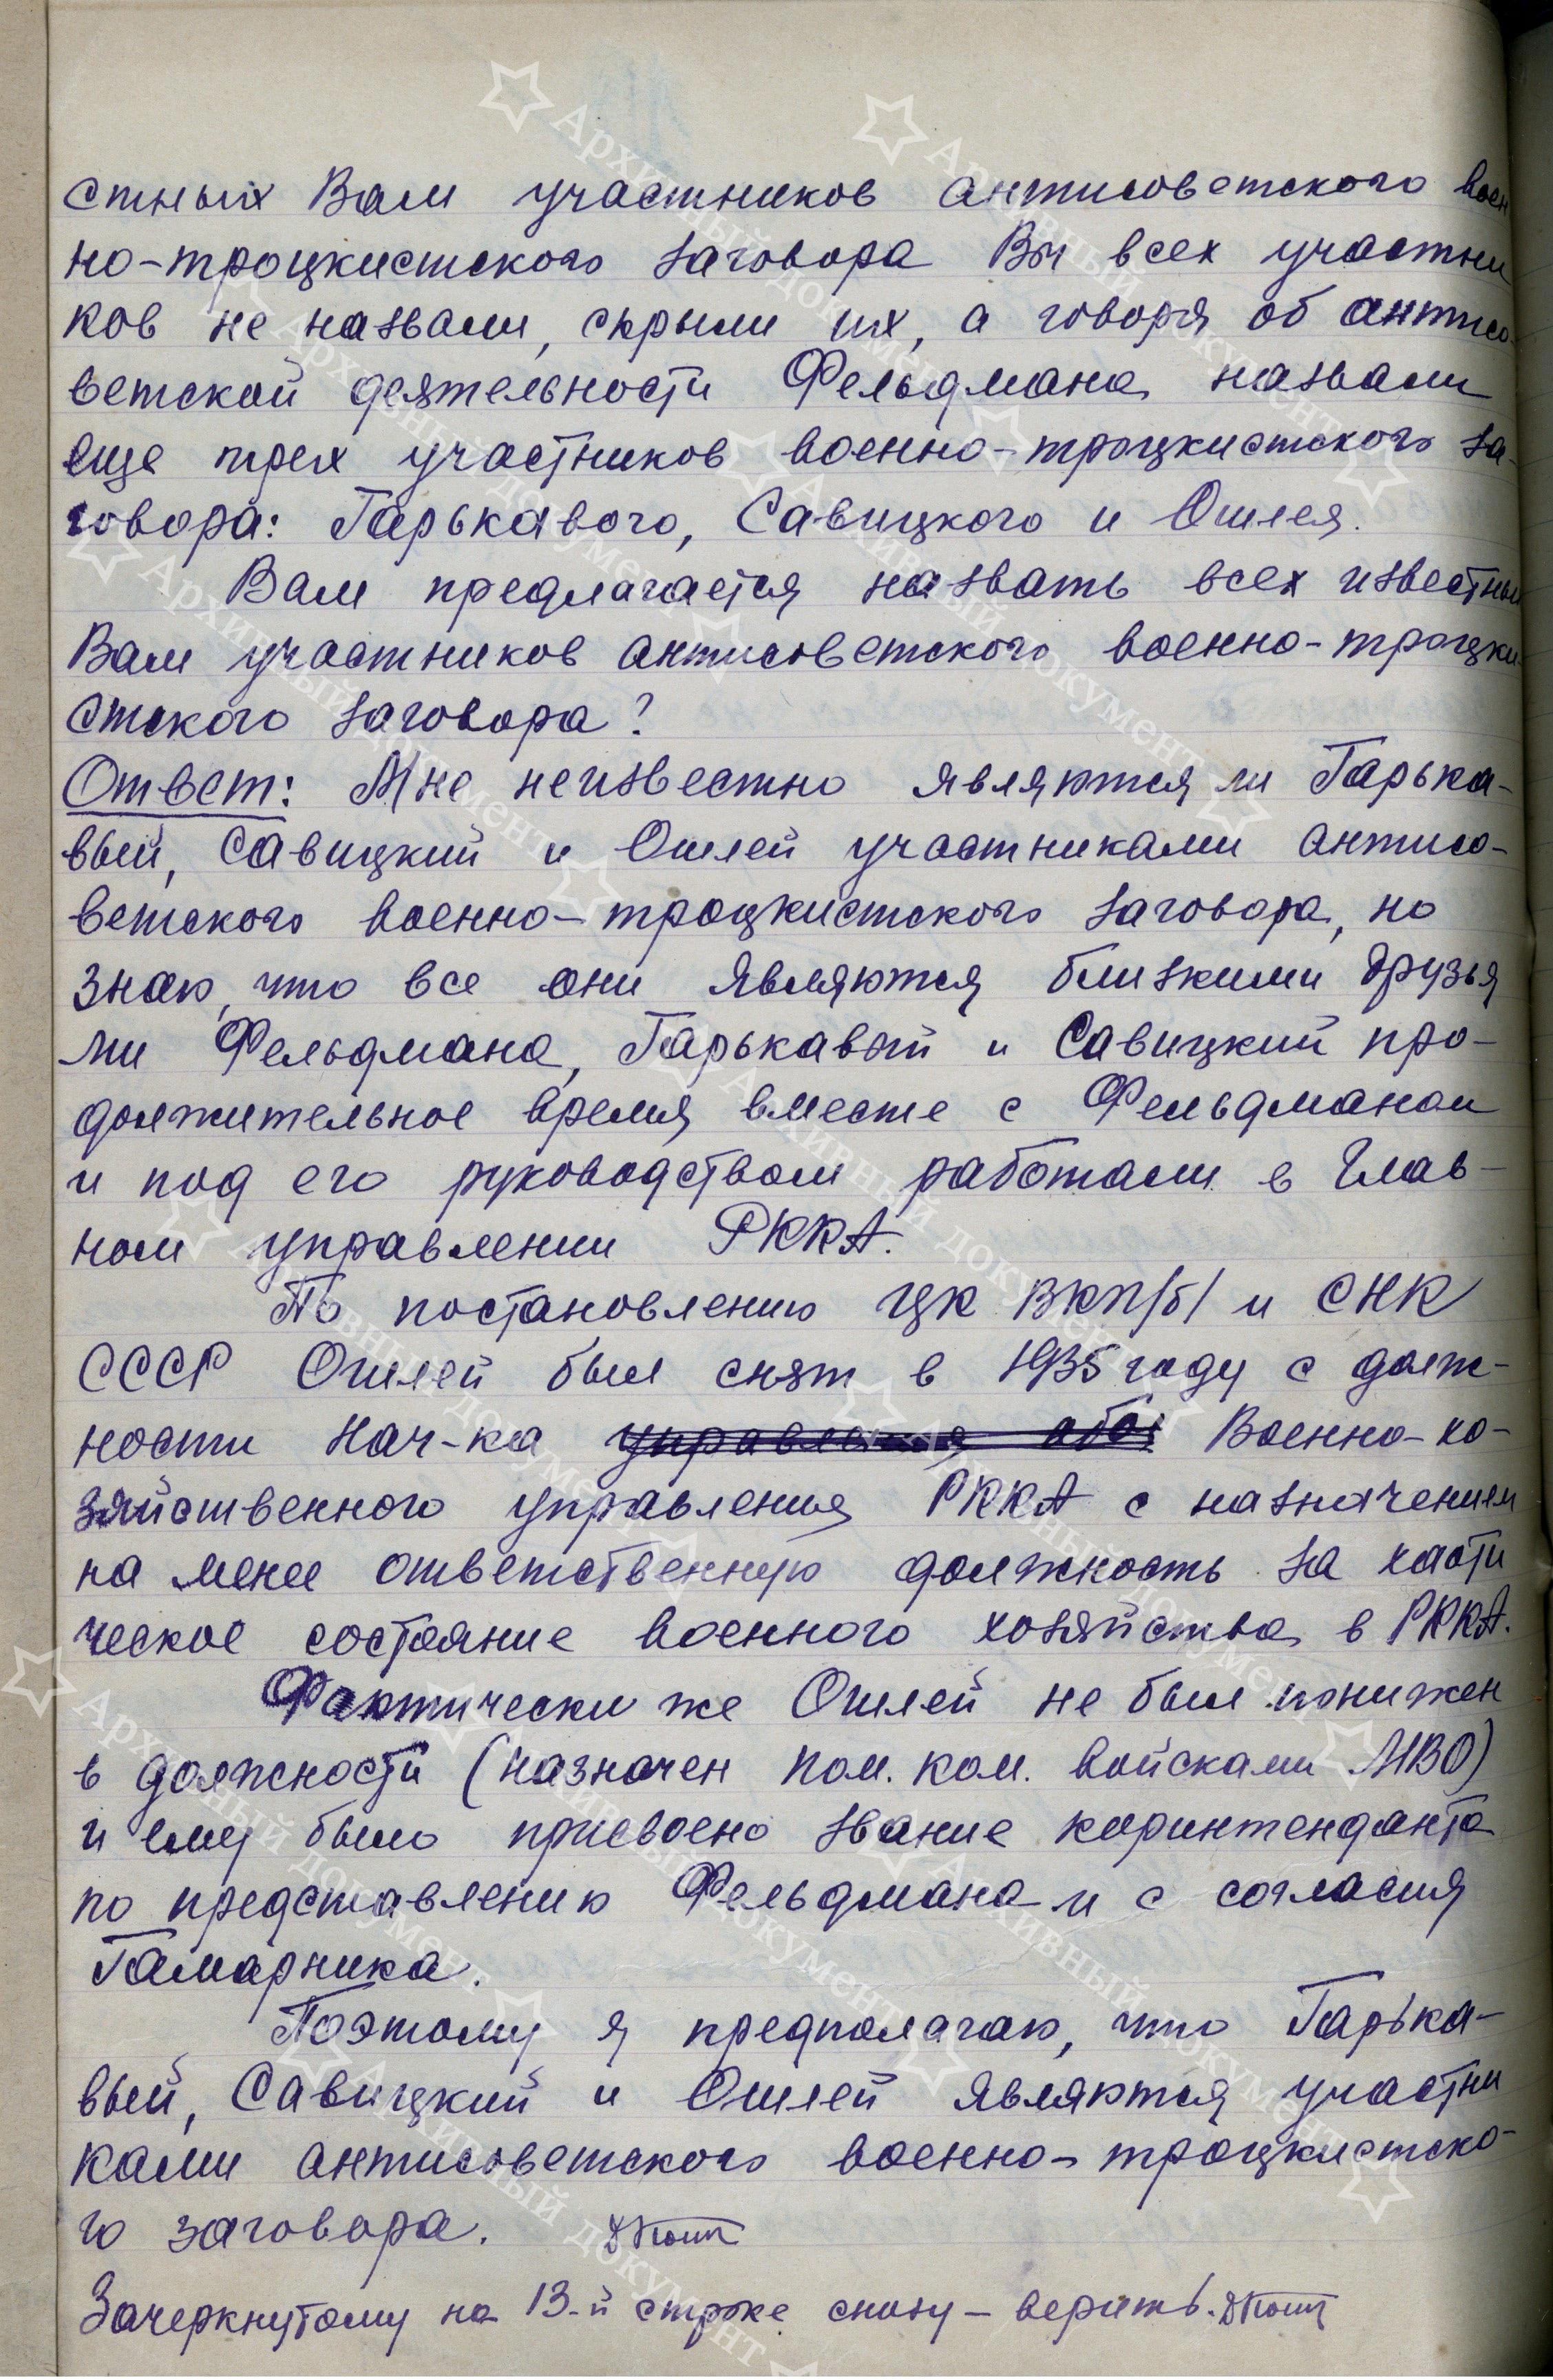 стных Вам участников антисоветского воен
но-троцкистского заговора Вы всех участни
ков не назвали, скрыли их, а говоря об антисо
ветской деятельности Фельдмана назвали
еще трех участников военно-троцкистского за-
говора: Гарькавого, Савицкого и Ошлея.
Вам предлагается назвать всех известных
Вам участников антисоветского военно-троцки-
стского заговора?
Ответ: Мне неизвестно являются ли Гарька-
вый, Савицкий и Ошлей участниками антисо-
ветского военно-троцкистского заговора, но
знаю, что все они являются близкими друзья
ми Фельдмана, Гарькавый и Савицкий про-
должительное время вместе с Фельдманом
и под его руководством работали в Глав-
ном управлении РККА.
По постановлению ЦК ВКП/б/ и СНК
СССР Ошлей был снят в 1935 году с долж-
ности Нач-ка управления обоз Военно-хо-
зяйственного управления РККА с назначением
на менее ответственную должность за хаоти
ческое состояние военного хозяйства в РККА.
Фактически же Ошлей не был понижен
в должности (назначен пом. ком. войсками МВО)
и ему было присвоено звание коринтенданта
по представлению Фельдмана и с согласия
Гамарника.
Поэтому я предполагаю, что Гарька-
вый, Савицкий и Ошлей являются участни
ками антисоветского военно-троцкистско-
го заговора.
Зачеркнутому на 13-й строке снизу – верить.
Архивный документ